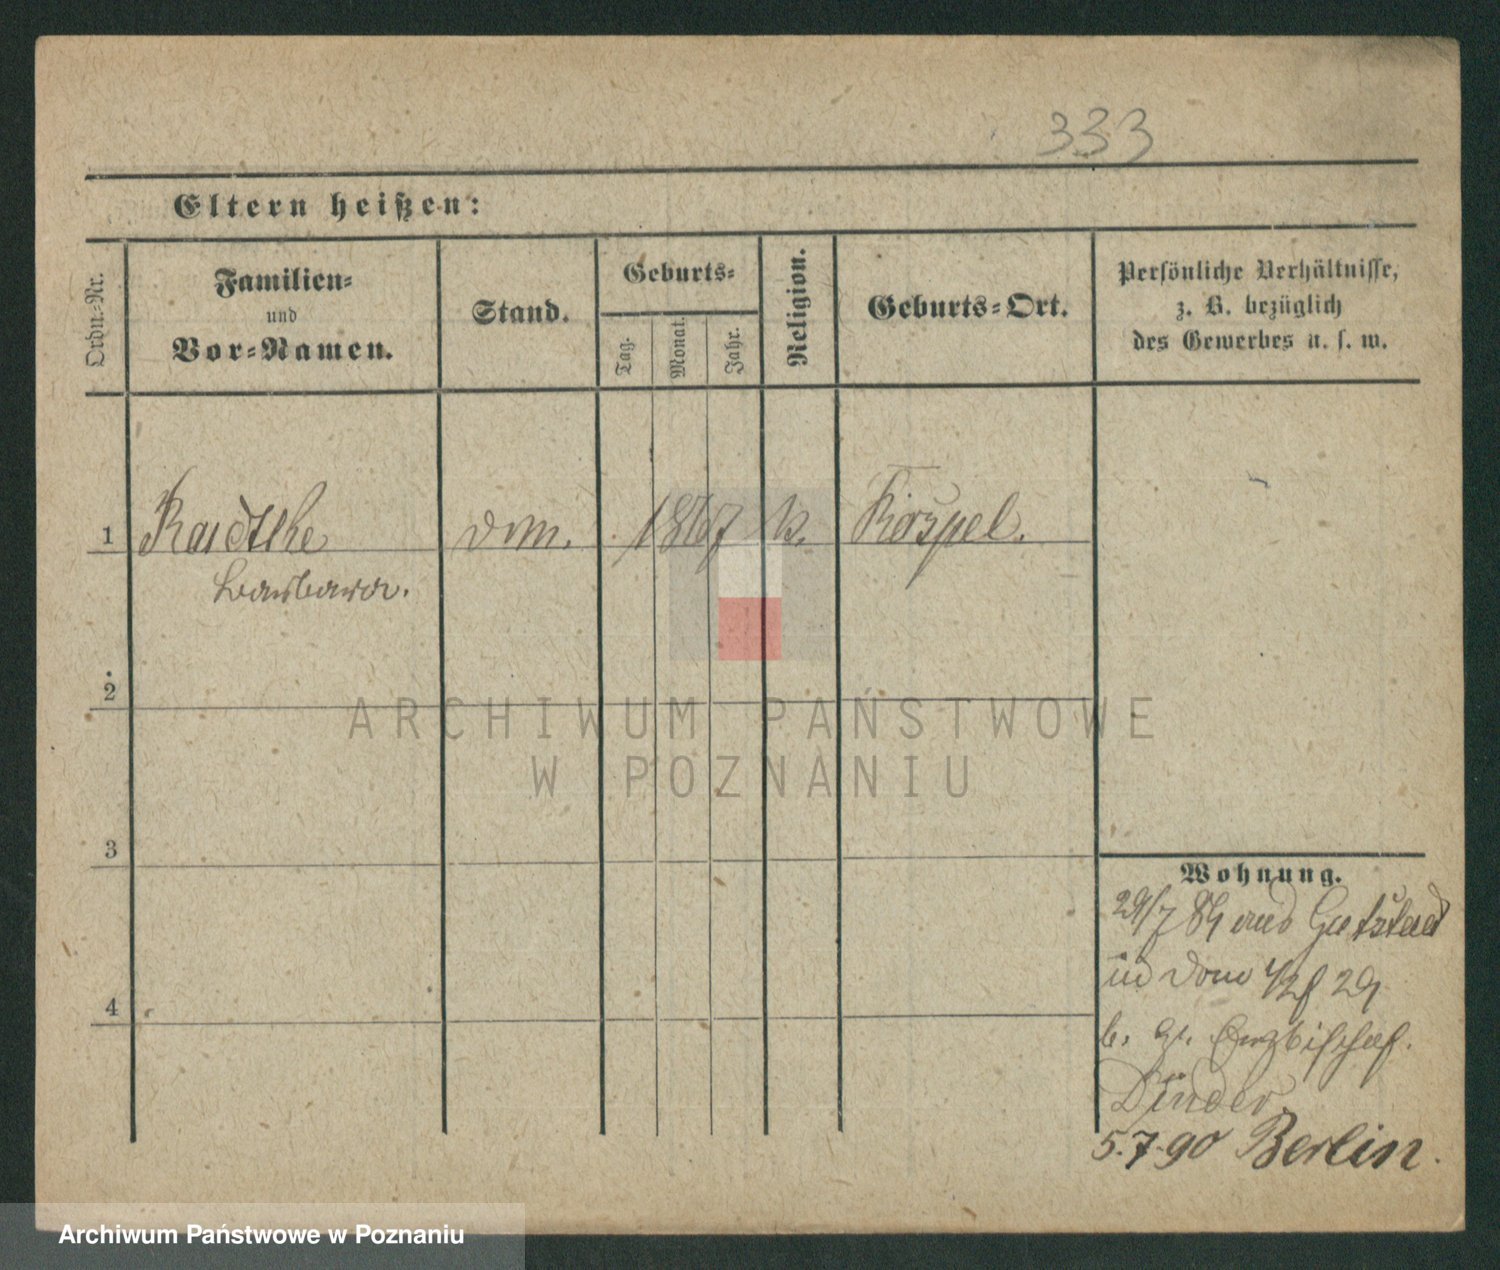 333
Eltern heißen:
Ordn.-Nr.
Familien-
und
Vor-Namen.
Stand.
Geburts-
Tag.
Monat.
Jahr.
Religion.
Geburts-Ort.
Persönliche Verhältnisse,
z. B. bezüglich
des Gewerbes u. s. w.
1 Radtke dom. 1867 k. Röspel.
Barbara.
2
ARCHIWUM PAŃSTWOWE
W POZNANIU
3
Wohnung.
29/7 89 aus Gutstadt
in Dom 4/2f 29
b. Erzbischof.
Dinder
4
5.7.90 Berlin.
Archiwum Państwowe w Poznaniu